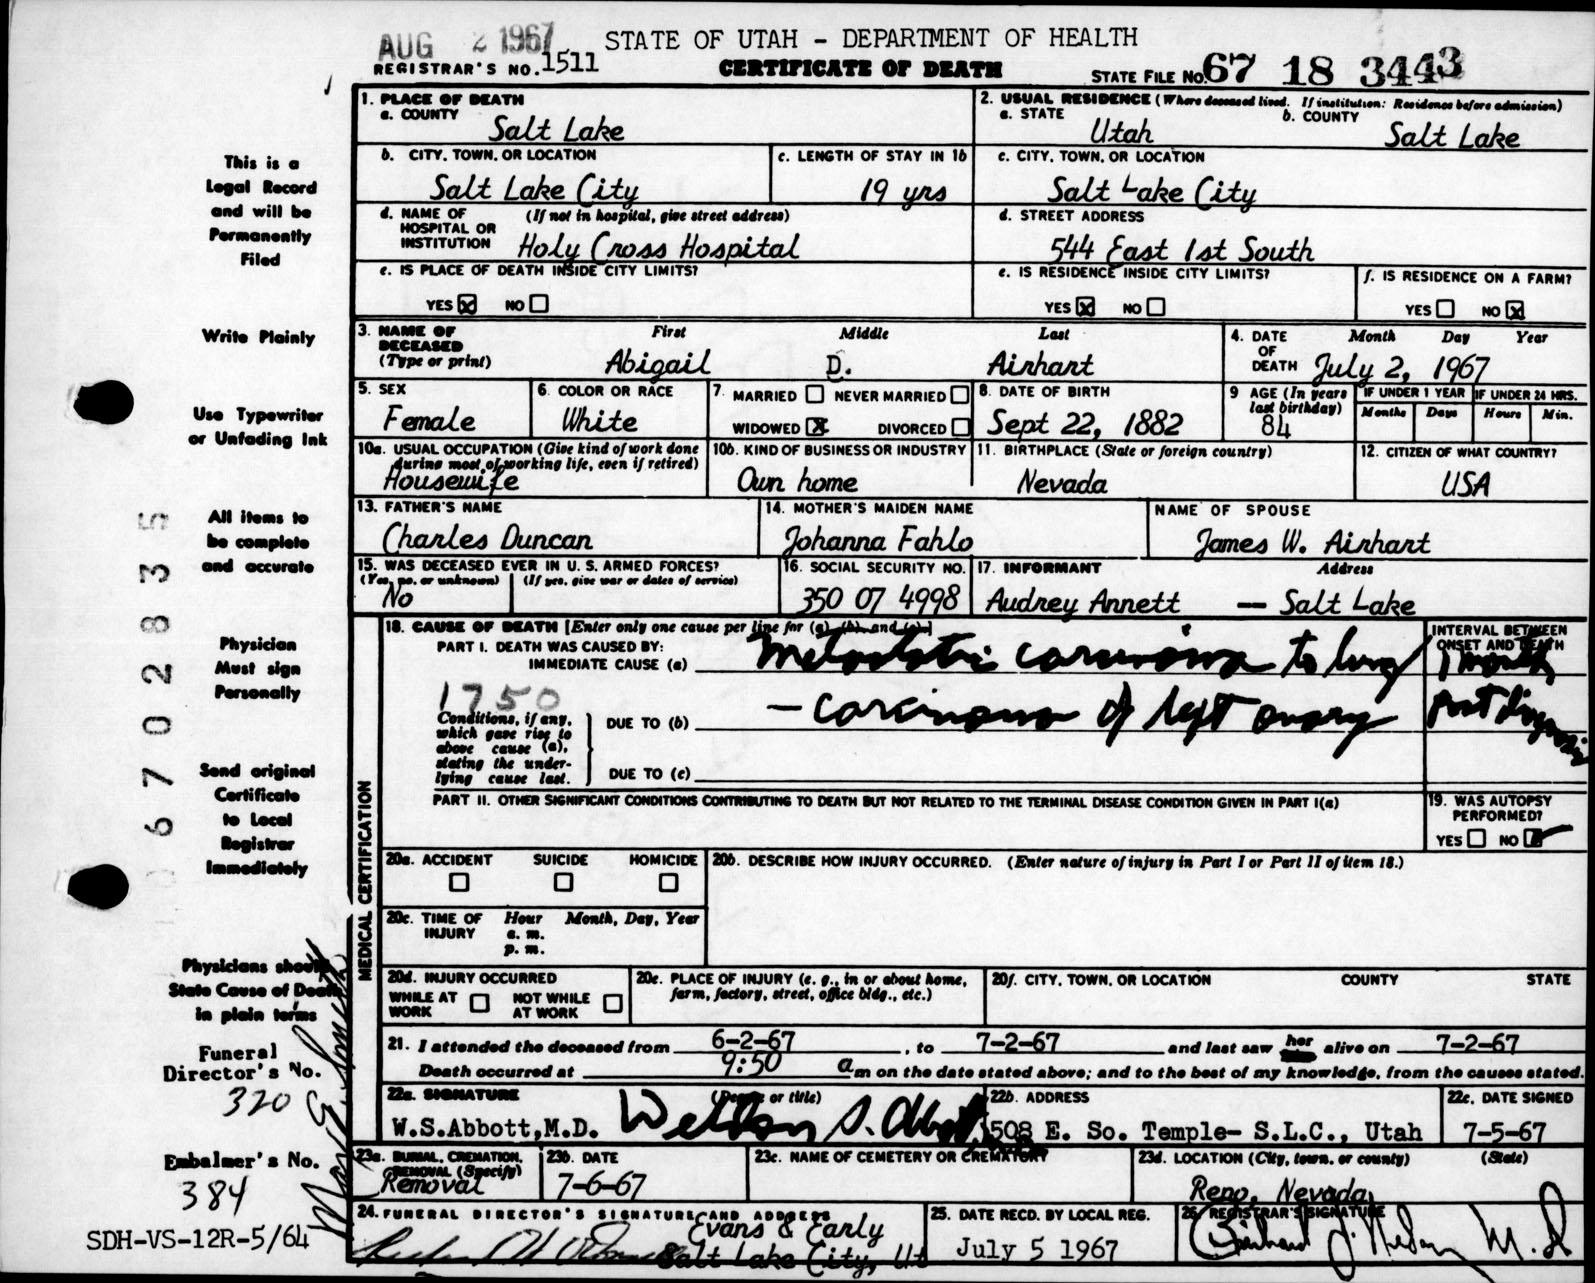 AUG 2 1967
STATE OF UTAH - DEPARTMENT OF HEALTH
REGISTRAR'S NO. 1511
CERTIFICATE OF DEATH
STATE FILE NO. 67 18 3443
This is a
Legal Record
and will be
Permanently
Filed
Write Plainly
Use Typewriter
or Unfading Ink
All items to
be complete
and accurate
Physician
Must sign
Personally
Send original
Certificate
to Local
Registrar
Immediately
Physicians should
State Cause of Death
in plain terms
Funeral
Director's No.
320
Embalmer's No.
384
SDH-VS-12R-5/64
6702835
1. PLACE OF DEATH
a. COUNTY
Salt Lake
2. USUAL RESIDENCE (Where deceased lived. If institution: Residence before admission)
a. STATE
Utah
b. COUNTY
Salt Lake
b. CITY, TOWN, OR LOCATION
Salt Lake City
c. LENGTH OF STAY IN 1b
19 yrs
c. CITY, TOWN, OR LOCATION
Salt Lake City
d. NAME OF HOSPITAL OR INSTITUTION (If not in hospital, give street address)
Holy Cross Hospital
d. STREET ADDRESS
544 East 1st South
e. IS PLACE OF DEATH INSIDE CITY LIMITS?
YES ☒ NO ☐
e. IS RESIDENCE INSIDE CITY LIMITS?
YES ☒ NO ☐
f. IS RESIDENCE ON A FARM?
YES ☐ NO ☒
3. NAME OF DECEASED (Type or print)
First Middle Last
Abigail D. Airhart
4. DATE OF DEATH
Month Day Year
July 2, 1967
5. SEX
Female
6. COLOR OR RACE
White
7. MARRIED ☐ NEVER MARRIED ☐
WIDOWED ☒ DIVORCED ☐
8. DATE OF BIRTH
Sept 22, 1882
9 AGE (In years last birthday)
84
IF UNDER 1 YEAR
Months Days
IF UNDER 24 HRS.
Hours Min.
10a. USUAL OCCUPATION (Give kind of work done during most of working life, even if retired)
Housewife
10b. KIND OF BUSINESS OR INDUSTRY
Own home
11. BIRTHPLACE (State or foreign country)
Nevada
12. CITIZEN OF WHAT COUNTRY?
USA
13. FATHER'S NAME
Charles Duncan
14. MOTHER'S MAIDEN NAME
Johanna Fahlo
NAME OF SPOUSE
James W. Airhart
15. WAS DECEASED EVER IN U. S. ARMED FORCES?
(Yes, no, or unknown) (If yes, give war or dates of service)
No
16. SOCIAL SECURITY NO.
350 07 4998
17. INFORMANT Address
Audrey Annett — Salt Lake
MEDICAL CERTIFICATION
18. CAUSE OF DEATH [Enter only one cause per line for (a), (b), and (c).]
PART I. DEATH WAS CAUSED BY:
IMMEDIATE CAUSE (a)
Metastatic carcinoma to lung
INTERVAL BETWEEN ONSET AND DEATH
1 month
post diagnosis
1750
Conditions, if any, which gave rise to above cause (a), stating the underlying cause last.
DUE TO (b)
- carcinoma of left ovary
DUE TO (c)
PART II. OTHER SIGNIFICANT CONDITIONS CONTRIBUTING TO DEATH BUT NOT RELATED TO THE TERMINAL DISEASE CONDITION GIVEN IN PART I(a)
19. WAS AUTOPSY PERFORMED?
YES ☐ NO ☑
20a. ACCIDENT SUICIDE HOMICIDE
☐ ☐ ☐
20b. DESCRIBE HOW INJURY OCCURRED. (Enter nature of injury in Part I or Part II of item 18.)
20c. TIME OF INJURY
Hour Month, Day, Year
a. m.
p. m.
20d. INJURY OCCURRED
WHILE AT WORK ☐ NOT WHILE AT WORK ☐
20e. PLACE OF INJURY (e. g., in or about home, farm, factory, street, office bldg., etc.)
20f. CITY, TOWN, OR LOCATION COUNTY STATE
21. I attended the deceased from 6-2-67, to 7-2-67 and last saw her alive on 7-2-67
Death occurred at 9:50 a m on the date stated above; and to the best of my knowledge, from the causes stated.
22a. SIGNATURE (Degree or title)
W.S.Abbott,M.D.
22b. ADDRESS
508 E. So. Temple- S.L.C., Utah
22c. DATE SIGNED
7-5-67
23a. BURIAL, CREMATION, REMOVAL (Specify)
Removal
23b. DATE
7-6-67
23c. NAME OF CEMETERY OR CREMATORY
23d. LOCATION (City, town, or county) (State)
Reno, Nevada
24. FUNERAL DIRECTOR'S SIGNATURE AND ADDRESS
Evans & Early
Salt Lake City, Ut
25. DATE RECD. BY LOCAL REG.
July 5 1967
26 REGISTRAR'S SIGNATURE